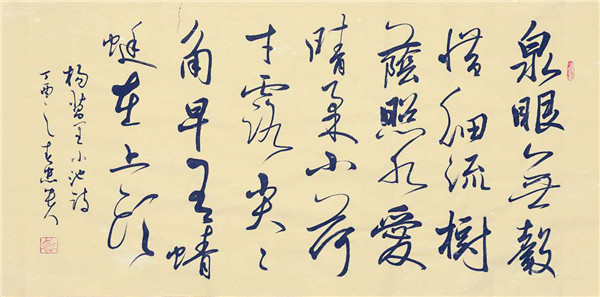 泉眼無聲
惜細流樹
蔭照水愛
晴柔小荷
才露尖々
角早有蜻
蜓在上頭
楊萬里小池詩
丁酉之春